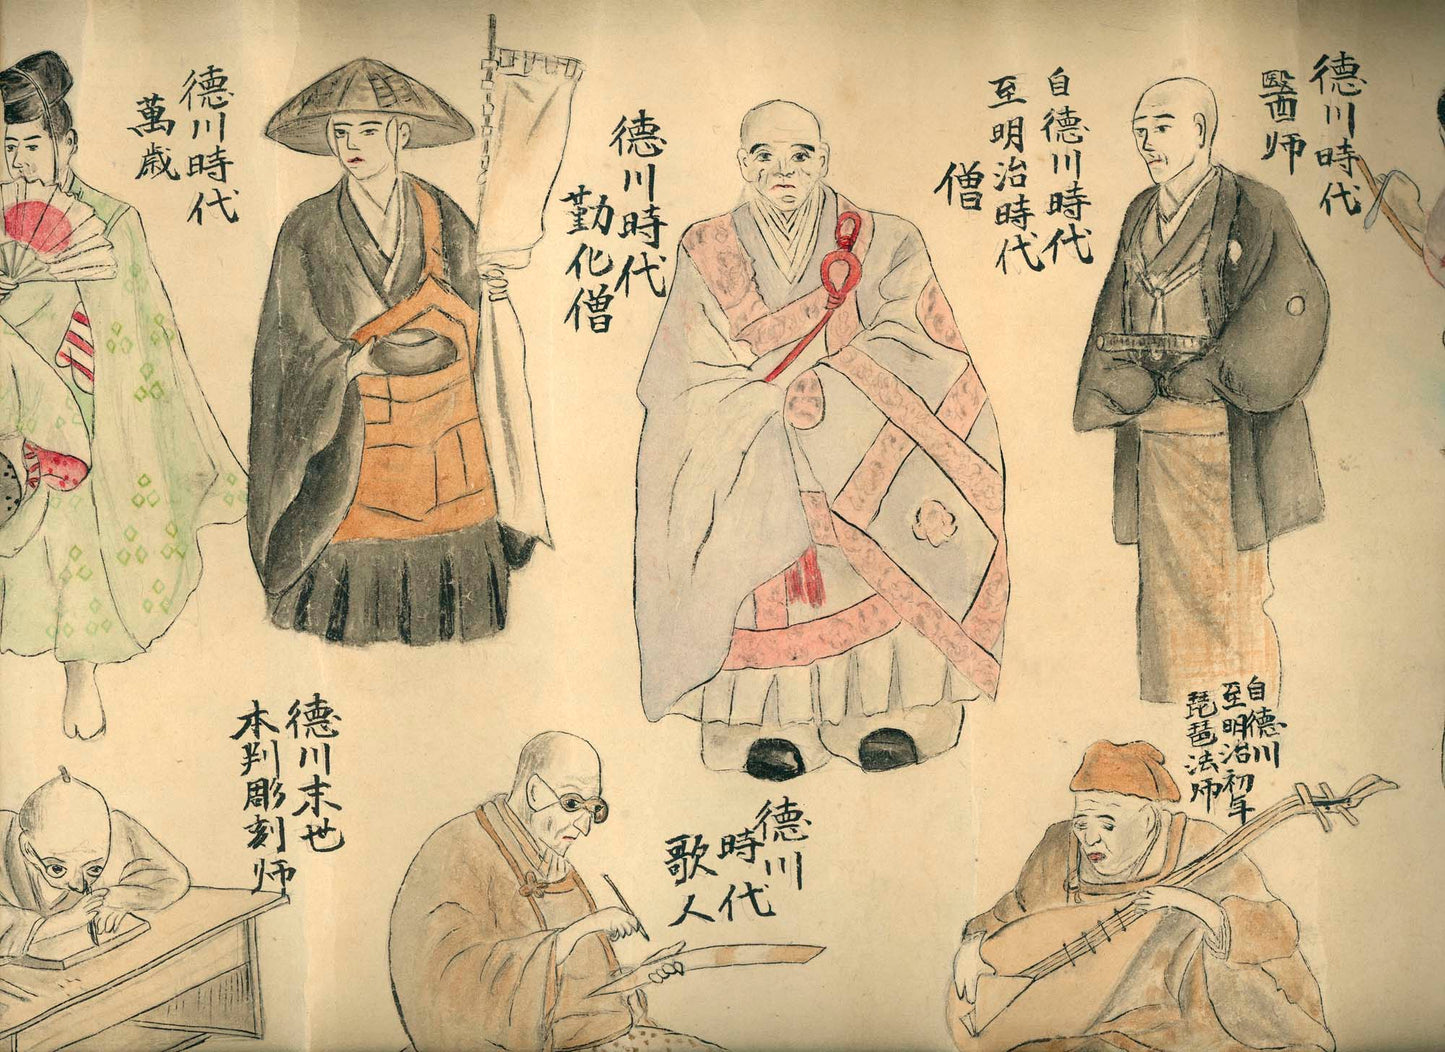 徳川時代
醫师
自徳川時代
至明治時代
僧
徳川時代
勤化僧
徳川時代
萬歳
自徳川
至明治初年
琵琶法师
徳川
時代
歌人
徳川末世
本判彫刻师